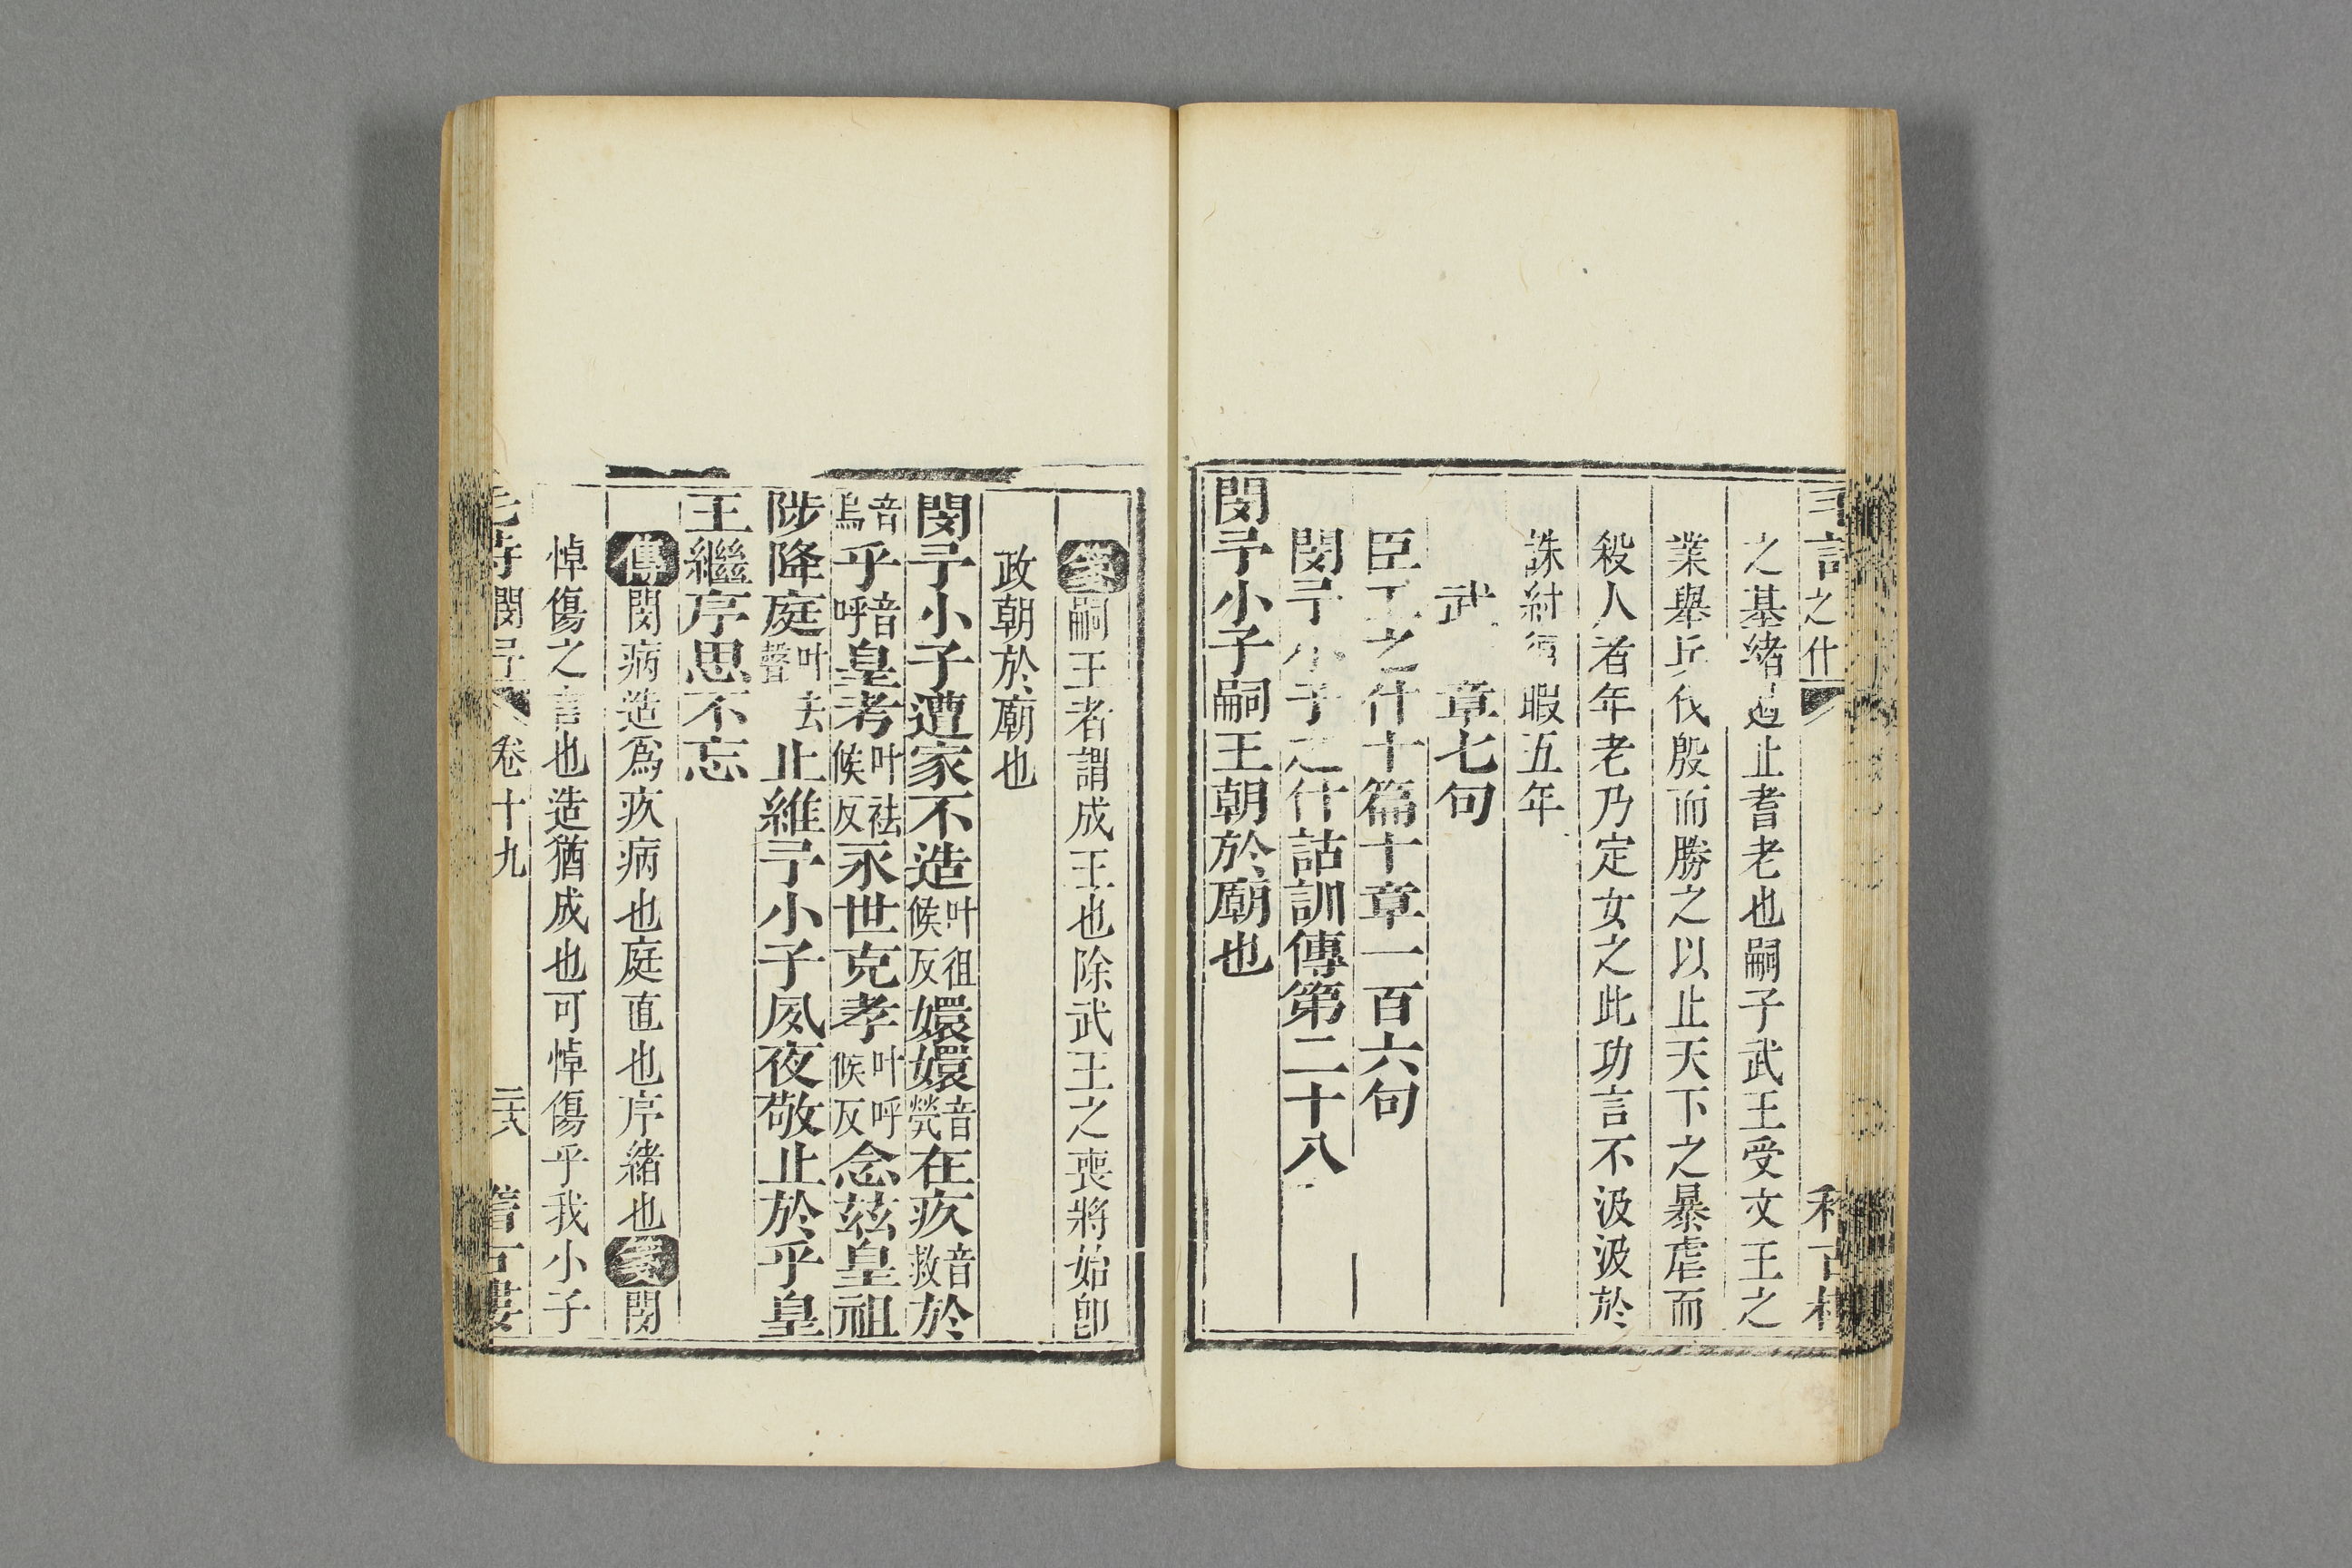 之什
之基緒遏止耆老也嗣子武王受文王之
業舉兵伐殷而勝之以止天下之暴虐而
殺人者年老乃定女之此功言不汲汲於
誅紂須暇五年
武 章七句
臣工之什十篇十章一百六句
閔予小子之什詁訓傳第二十八
閔予小子嗣王朝於廟也
箋嗣王者謂成王也除武王之喪將始卽
政朝於廟也
閔予小子遭家不造叶徂候反嬛嬛音煢在疚音救於
音烏乎音呼皇考叶祛候反永世克孝叶呼候反念茲皇祖
陟降庭叶去聲止維予小子夙夜敬止於乎皇
王繼序思不忘
傳閔病造爲疚病也庭直也序緒也箋閔
悼傷之言也造猶成也可悼傷乎我小子
毛詩閔予 卷十九